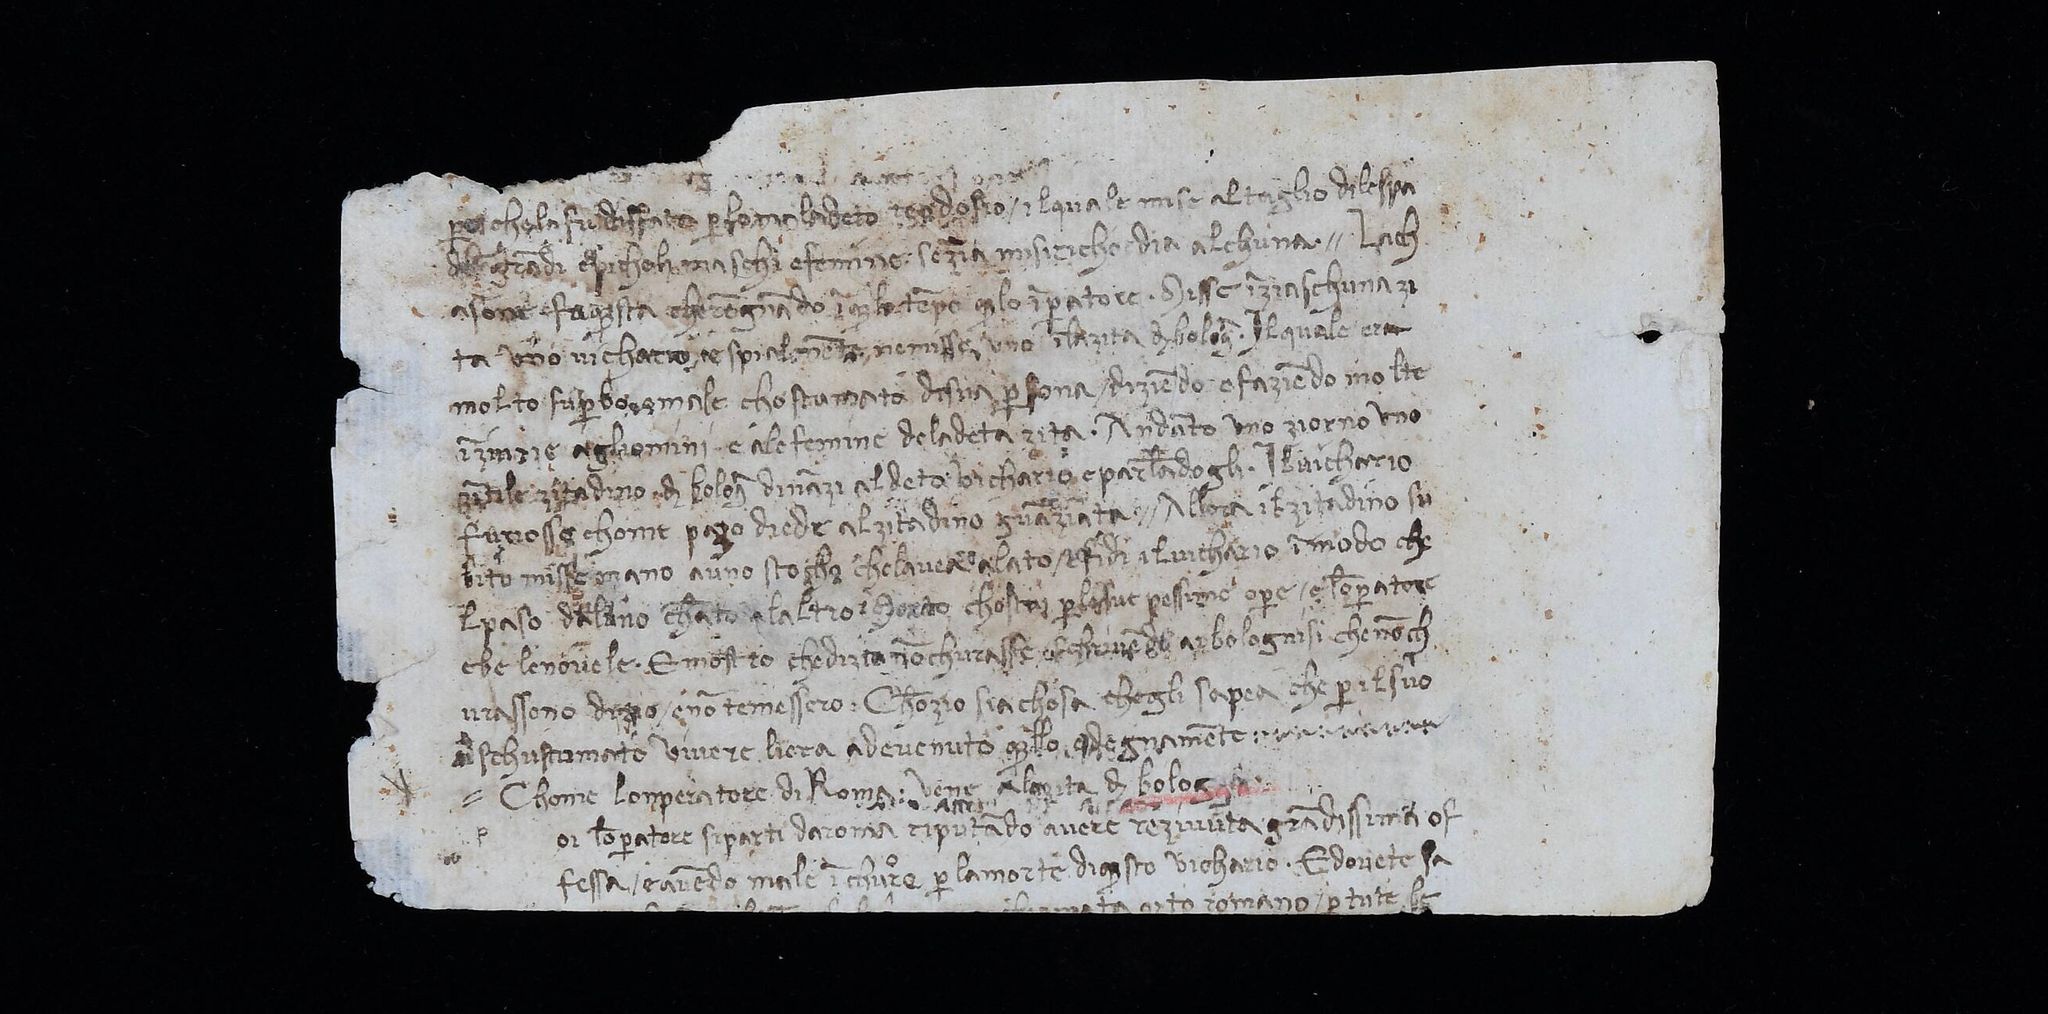 perchela fu disfato p lo maladeto teodosio / ilquale mise altaglio dilespa
de grādi epicholi maschi efemine sēzia misirichordia alchuna // Lach
asone fu q̄sta che rēgnādo ī q̄lo tēpo q̄lo īpatore . Misse īziaschuna zi
ta uno vichario e spialmēte nemisse uno īlazita d bologᵃ . Ilquale era
molto supbo e male chostumato disua psona / diziēdo e faziēdo molte
īzurie agliomini e alefemine deladeta zita . Andāto uno ziorno uno
zītile zitadino d bologᵃ dināzi aldeto vichario e parlādogli . Il vichario
furiosse chome pazo diede alzitadino guāziata // Allora ilzitadino su
bito misse mano auno stogho chelavea alato / e fidi ilvichario ī modo che
lpaso daluno chāto alaltro morto chostui plesue pessime opere / e lōpatore
ebe lenovele . E mostro chedizia nō churasse schrivēdo aibolognisi chenō ch
urassono dizio / enō temessero . Chōzio sia chosa chegli sapea che p il suo
dischustumato vivere liera adevenuto q̄llo degnamēte
= Chome lonperatore di Roma vene alazita d bologna
oi lōpatore siparti daroma riputādo avere rezivuta grādissima of
fessa / e avēdo male ī chuore p lamorte diq̄sto vichario . E dovete sa
romano / p tute le